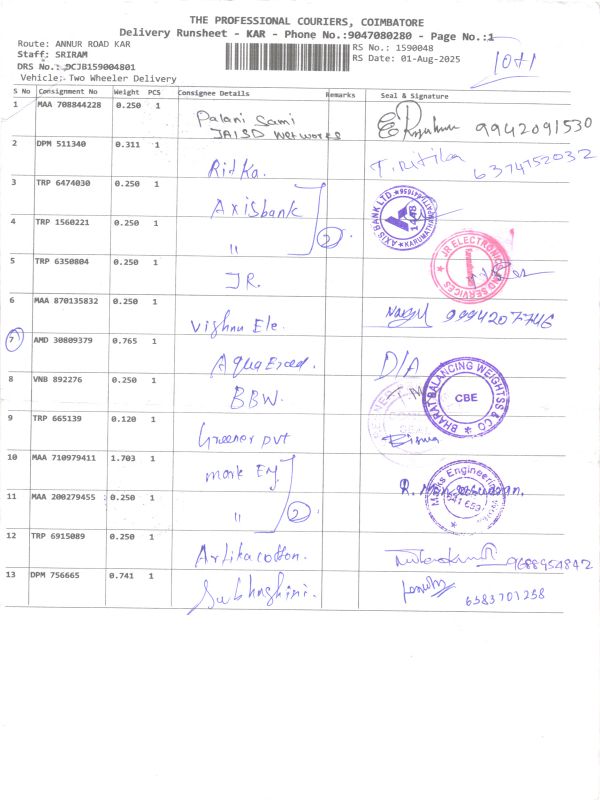 THE PROFESSIONAL COURIERS, COIMBATORE
Delivery Runsheet - KAR - Phone No.:9047080280 - Page No.:1
Route: ANNUR ROAD KAR
Staff: SRIRAM
DRS No.: DCJB159004801
Vehicle: Two Wheeler Delivery
RS No.: 1590048
RS Date: 01-Aug-2025
10+1
S No Consignment No Weight PCS Consignee Details Remarks Seal & Signature
1 MAA 708844228 0.250 1 Palani Sami
JAISD Networks 9942091530
2 DPM 511340 0.311 1 Ritka. T. Ritika 6374752032
3 TRP 6474030 0.250 1 Axisbank
AXIS BANK LTD. KARUMATHAMPATTI 641659
4 TRP 1560221 0.250 1 " 2
5 TRP 6350804 0.250 1 JR.
JR ELECTRONICS AND SERVICES
6 MAA 870135832 0.250 1 Vishnu Ele. 9994207746
7 AMD 30809379 0.765 1 D/A
8 VNB 892276 0.250 1 BBW.
BHARAT BALANCING WEIGHTSS & CO CBE
9 TRP 665139 0.120 1 Greener pvt
10 MAA 710979411 1.703 1 mark Eng
Marks Engineering
11 MAA 200279455 0.250 1 " 2
12 TRP 6915089 0.250 1 Artika cotton. 9688954842
13 DPM 756665 0.741 1 Subhashini. 6383701238